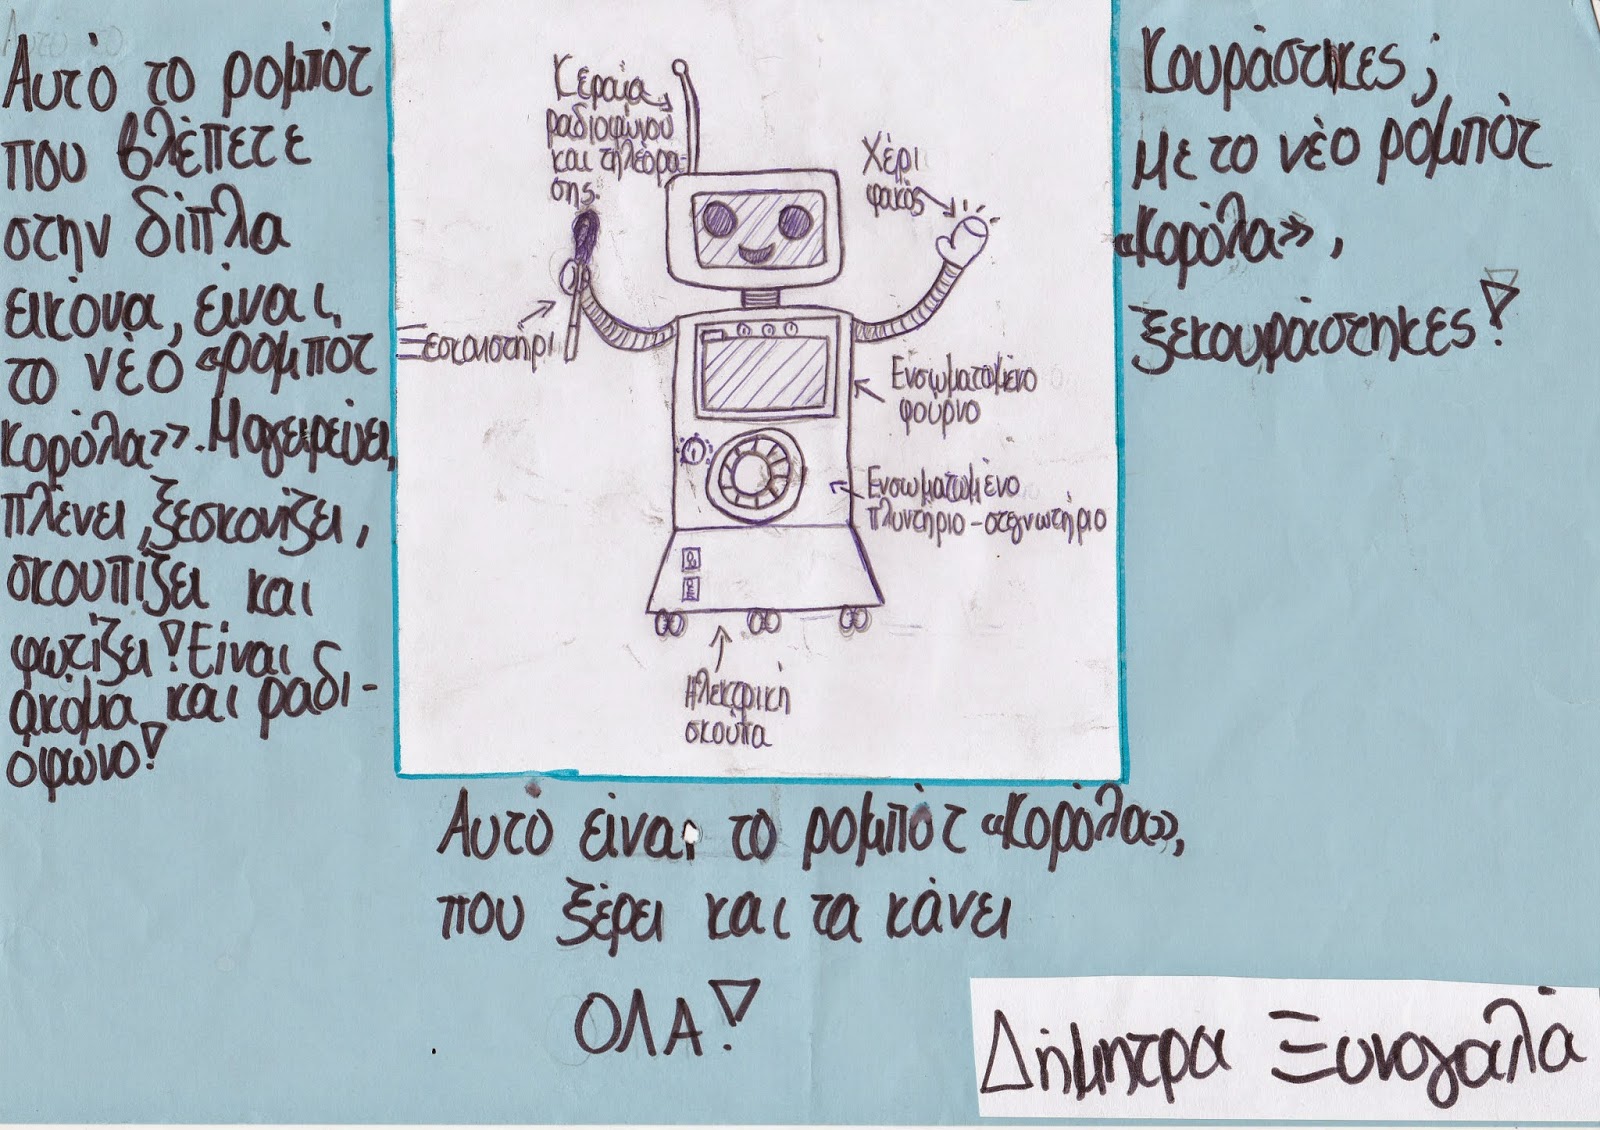 Αυτό το ρομπότ
που βλέπετε
στην δίπλα
εικόνα, είναι
το νέο «ρομπότ
κορόλα». Μαγειρεύει,
πλένει, ξεσκονίζει,
σκουπίζει και
φωτίζει! Είναι
ακόμα και ραδι-
όφωνο!
Κεραία
ραδιοφώνου
και τηλεόρα-
σης.
Χέρι
φακός
Ξεσκονιστήρι
Ενσωματωμένο
φούρνο
Ενσωματωμένο
πλυντήριο-στεγνωτήριο
Ηλεκτρική
σκούπα
Κουράστικες;
Με το νέο ρομπότ
«Κορόλα»,
ξεκουράστηκες!
Αυτό είναι το ρομπότ «Κορόλα»,
που ξέρει και τα κάνει
ΟΛΑ!
Δήμητρα Ξυνογαλά